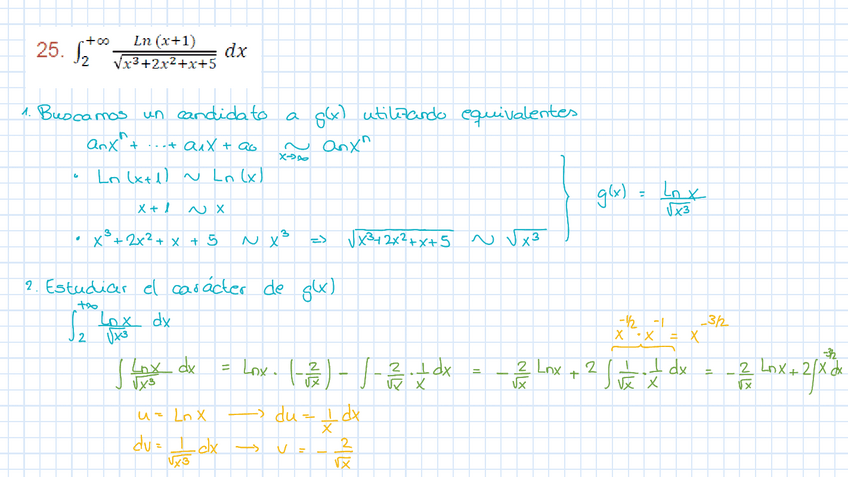 25. ∫₂^{+∞} Ln (x+1) / √(x³+2x²+x+5) dx
1. Buscamos un candidato a g(x) utilizando equivalentes
aₙxⁿ + ... + a₁x + a₀ ~_{x→∞} aₙxⁿ
• Ln (x+1) ~ Ln (x)
x + 1 ~ x
g(x) = Ln x / √x³
• x³ + 2x² + x + 5 ~ x³ => √(x³+2x²+x+5) ~ √x³
2. Estudiar el carácter de g(x)
∫₂^{+∞} Ln x / √x³ dx
x^{-1/2} · x^{-1} = x^{-3/2}
∫ Ln x / √x³ dx = Ln x · (-2/√x) - ∫ -2/√x · 1/x dx = -2/√x Ln x + 2 ∫ 1/√x · 1/x dx = -2/√x Ln x + 2∫ x^{-3/2} dx
u = Ln x → du = 1/x dx
dv = 1/√x³ dx → v = -2/√x